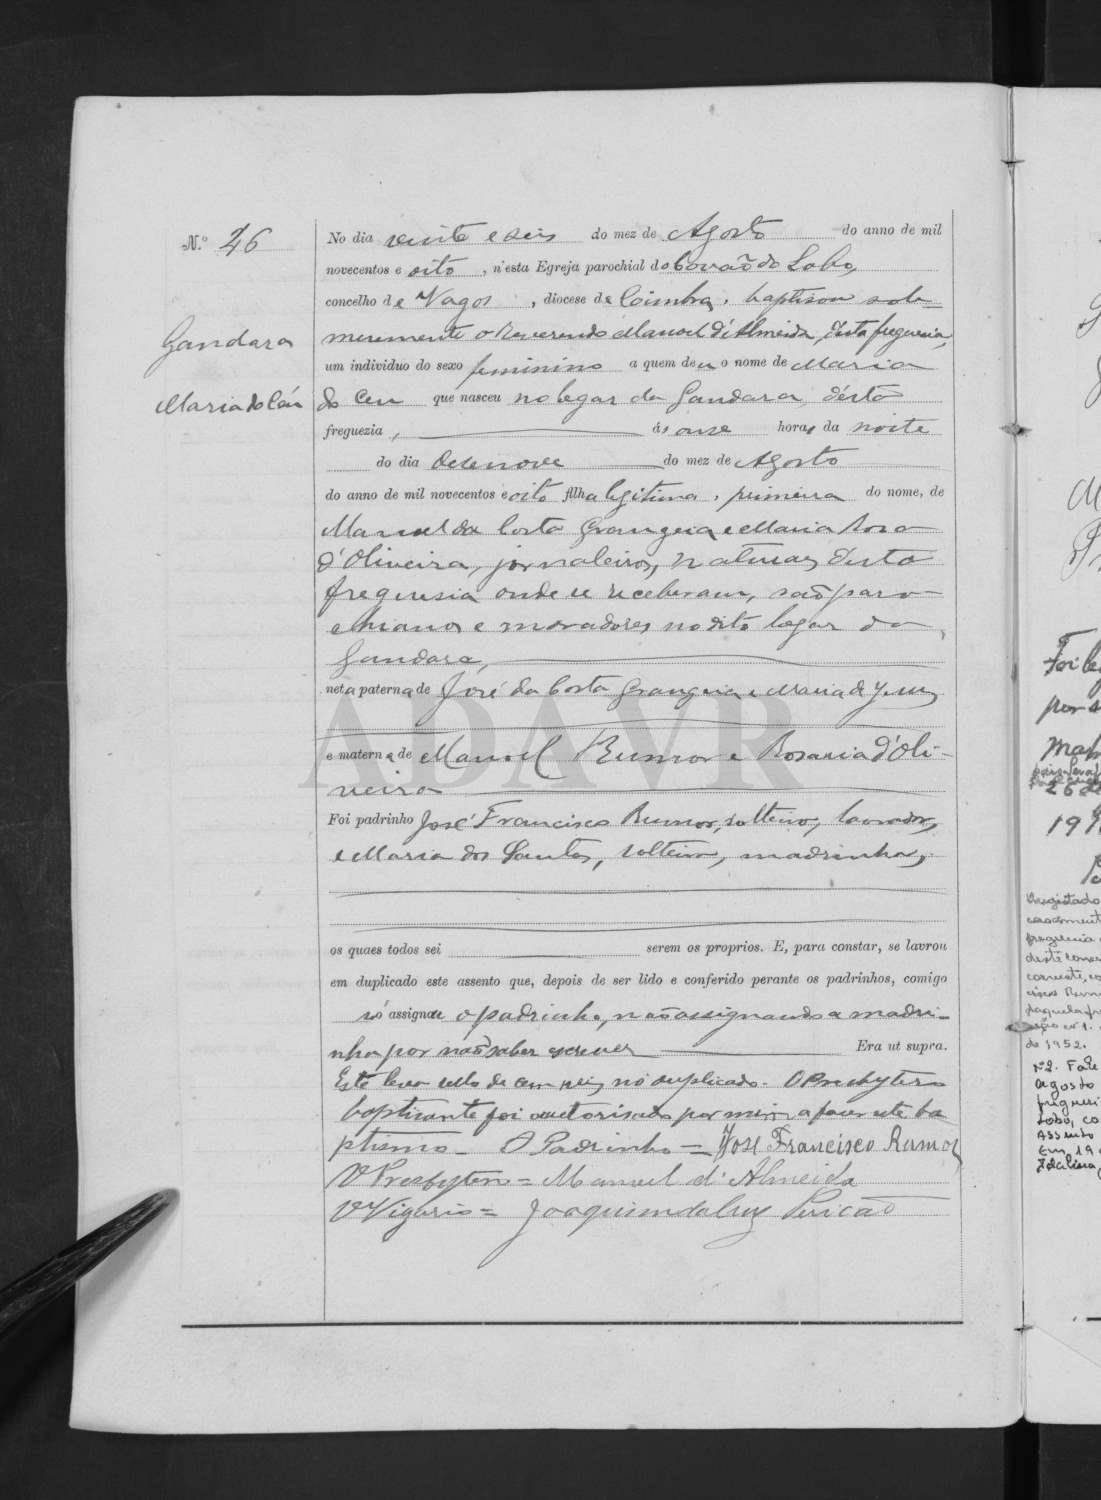 N.º 26
Gandara
Maria do Céu
No dia vinte e seis do mez de Agosto do anno de mil
novecentos e oito, n'esta Egreja parochial do Covão do Lobo,
concelho de Vagos, diocese de Coimbra, baptisou sole-
mnemente o Reverendo Manoel d'Almeida, d'esta freguesia,
um individuo do sexo feminino a quem deu o nome de Maria
do Ceu que nasceu no logar da Gandara, d'ésta
freguezia, ás onze horas da noite
do dia desenove do mez de Agosto
do anno de mil novecentos e oito filha legitima, primeira do nome, de
Manuel da Costa Grangeia e Maria Rosa
d'Oliveira, jornaleiros, naturaes d'esta
freguesia onde se receberam, são paro-
chianos e moradores no dito logar da
Gandara,
neta paterna de José da Costa Grangeia e Maria de Jesus
ADAVR
e materna de Manoel Rumor e Rosaria d'Oli-
veira
Foi padrinho José Francisco Rumor, solteiro, lavrador,
e Maria dos Santos, solteira, madrinha,
os quaes todos sei serem os proprios. E, para constar, se lavrou
em duplicado este assento que, depois de ser lido e conferido perante os padrinhos, comigo
só assignou o padrinho, não assignando a madri-
nha por não saber escrever Era ut supra.
Este leva sello de cem reis no duplicado. O Presbytero
baptisante foi auctorisado por mim a fazer este ba
ptismo - O Padrinho = José Francisco Rumor
O Presbytero = Manuel d'Almeida
O Vigario = Joaquim da Cruz Pericão
Foi le
por s
26 de
19
Registado
casament
freguesia
deste conce
corrente, co
cisco Rum
daquela fre
de 1952.
Nº2. Fale
Agosto
freguesi
Lobo, co
Assento
Em, 19